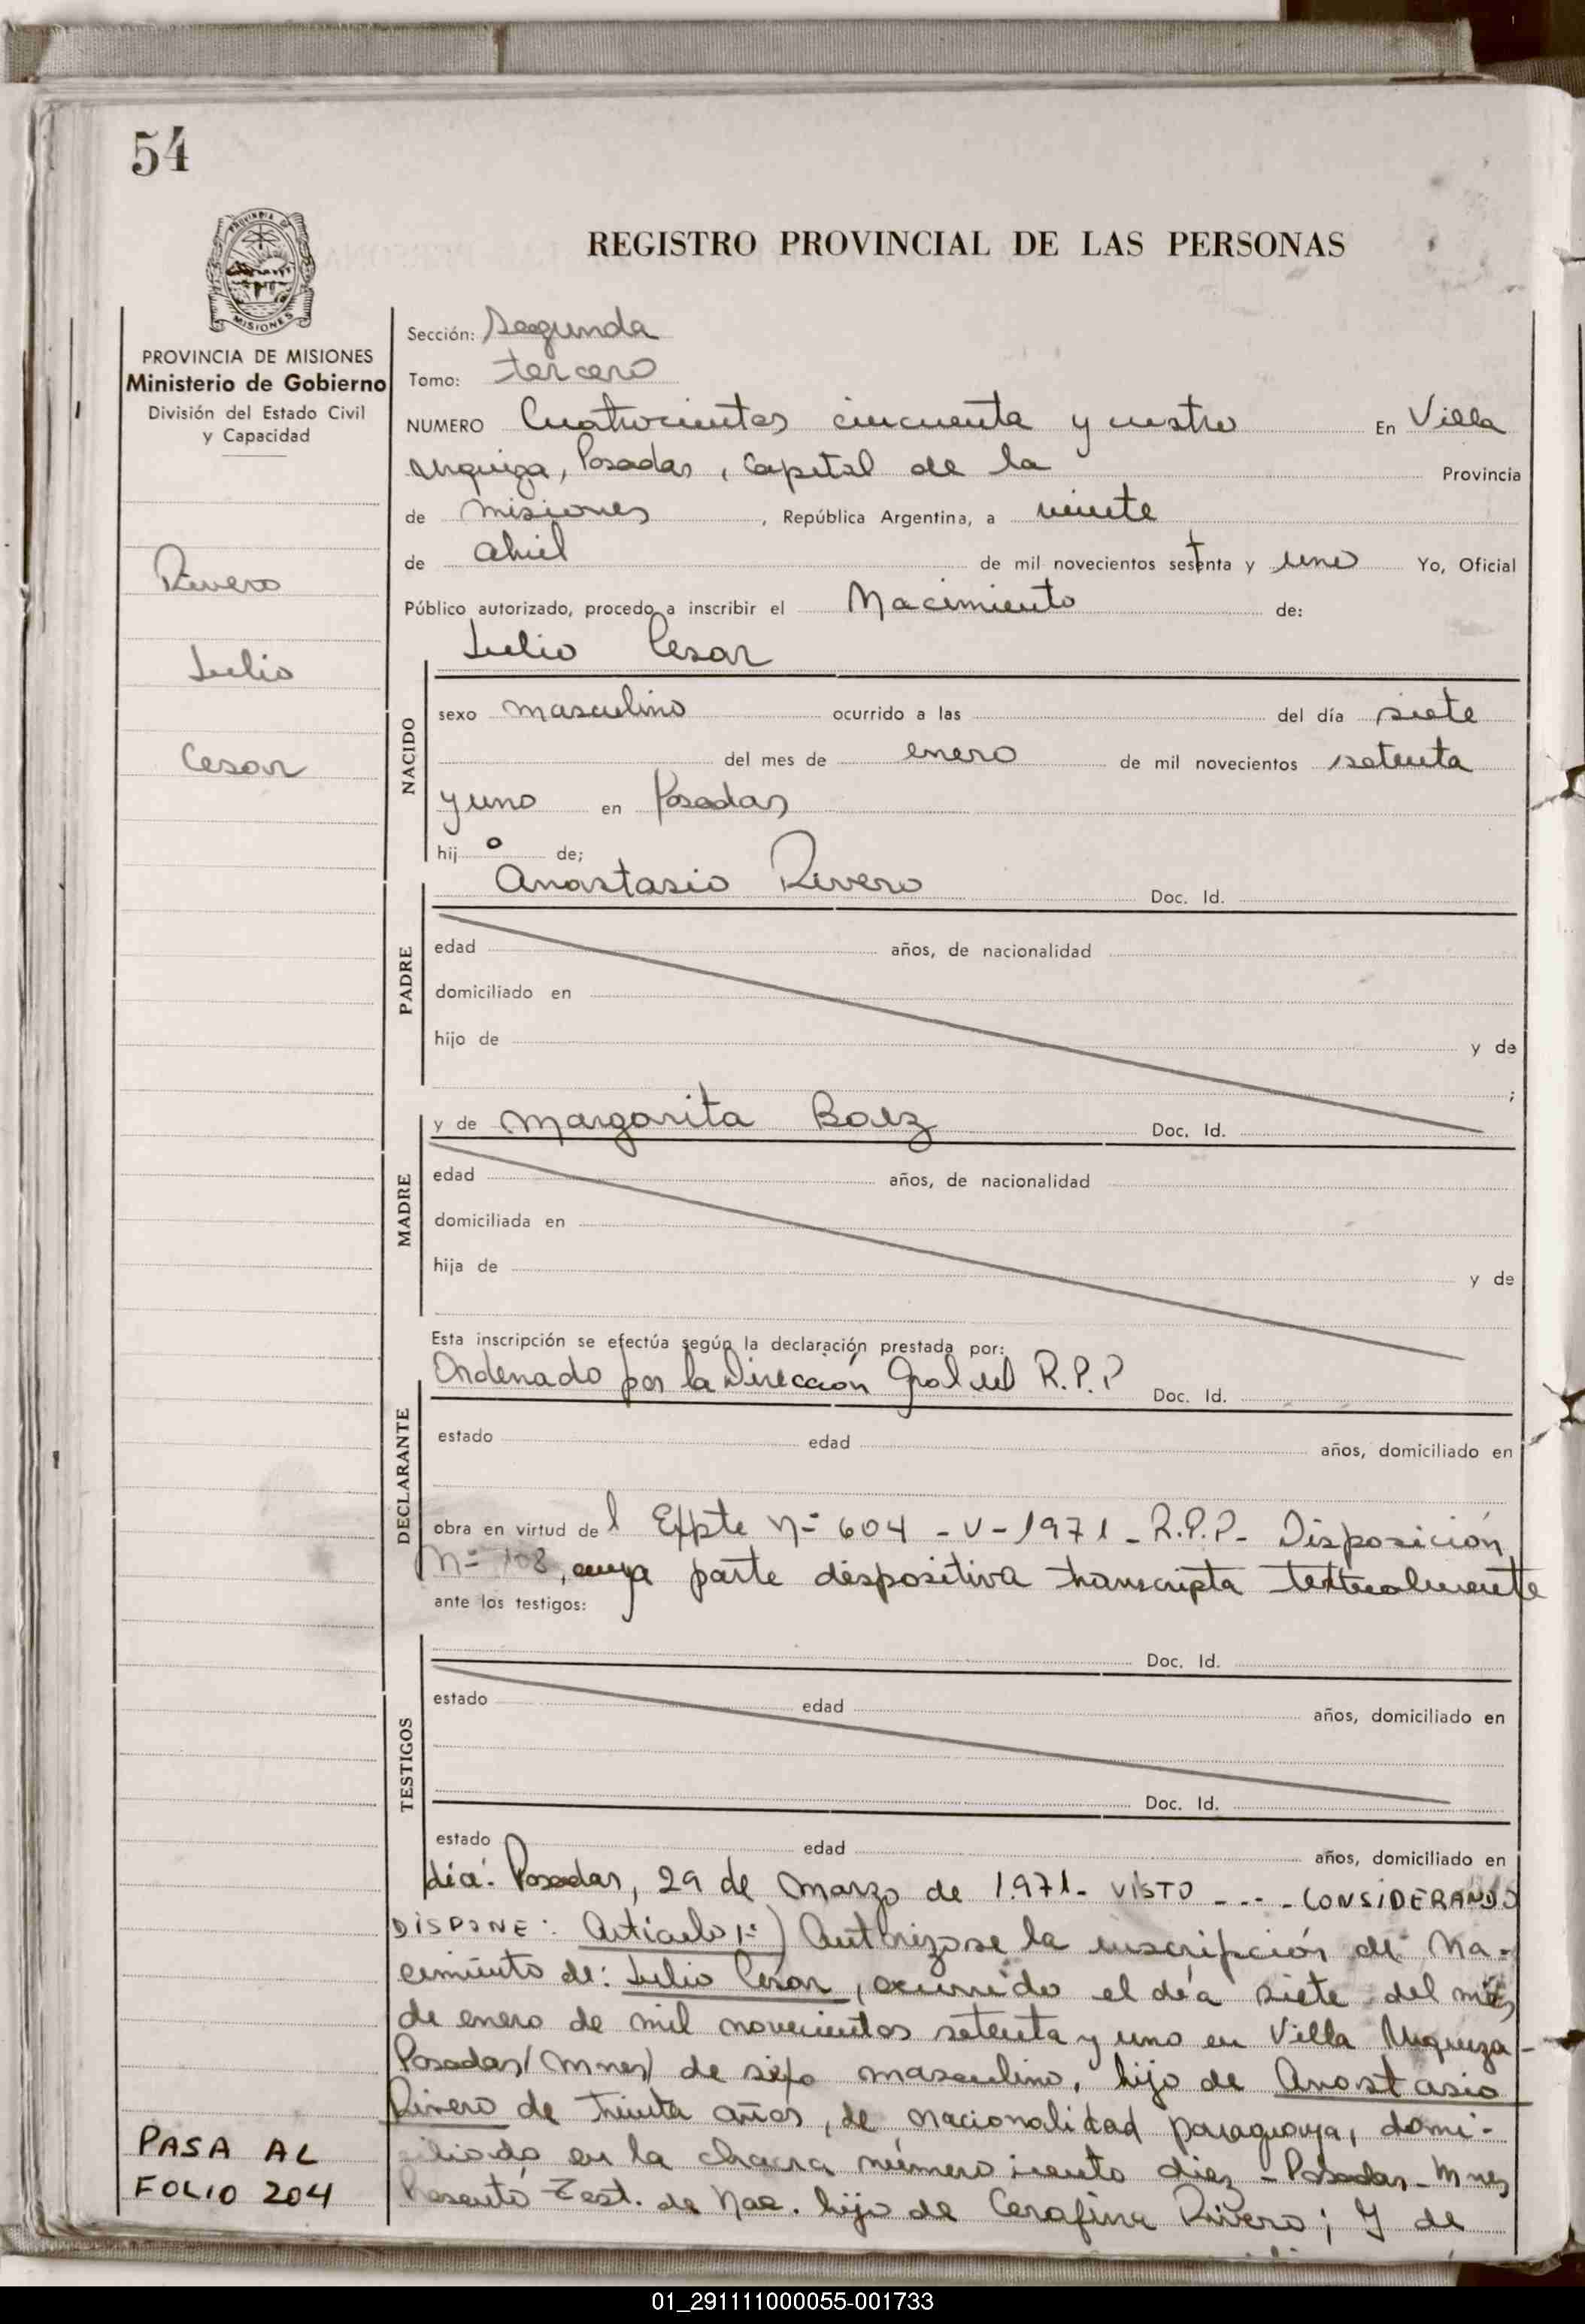 54
PROVINCIA DE
MISIONES
REGISTRO PROVINCIAL DE LAS PERSONAS
PROVINCIA DE MISIONES
Ministerio de Gobierno
División del Estado Civil
y Capacidad
Rivero
Julio
Cesar
Sección: Segunda
Tomo: tercero
NUMERO Cuatrocientos cincuenta y cuatro En Villa
Urquiza, Posadas, Capital de la Provincia
de Misiones, República Argentina, a veinte
de abril de mil novecientos setenta y uno Yo, Oficial
Público autorizado, procedo a inscribir el Nacimiento de:
Julio Cesar
NACIDO
sexo masculino ocurrido a las del día siete
del mes de enero de mil novecientos setenta
y uno en Posadas
hijo de;
PADRE
Anastasio Rivero Doc. Id.
edad años, de nacionalidad
domiciliado en
hijo de y de
;
MADRE
y de Margarita Baez Doc. Id.
edad años, de nacionalidad
domiciliada en
hija de y de
Esta inscripción se efectúa según la declaración prestada por:
DECLARANTE
Ordenado por la Dirección Gral del R.P.P Doc. Id.
estado edad años, domiciliado en
obra en virtud del Expte Nº 604 - V - 1971 - R.P.P - Disposición
Nº , cuya parte dispositiva transcripta textualmente
ante los testigos:
TESTIGOS
Doc. Id.
estado edad años, domiciliado en
Doc. Id.
estado edad años, domiciliado en
dia: Posadas, 29 de Marzo de 1.971- VISTO - - - - CONSIDERANDO
DISPONE: Articulo 1º) Autorizase la inscripción de Na-
cimiento de: Julio Cesar, ocurrido el día siete del mes
de enero de mil novecientos setenta y uno en Villa Urquiza -
Posadas (Mnes) de sexo masculino, hijo de Anastasio
Rivero de treinta años, de nacionalidad paraguaya, domi-
ciliado en la chacra número ciento diez - Posadas - Mnes
Presentó Test. de Nac. hijo de Cerafina Rivero; Y de
PASA AL
FOLIO 204
01_291111000055-001733